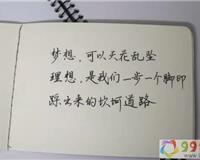 梦想，可以天花乱坠
理想，是我们一步一个脚印
踩出来的坎坷道路